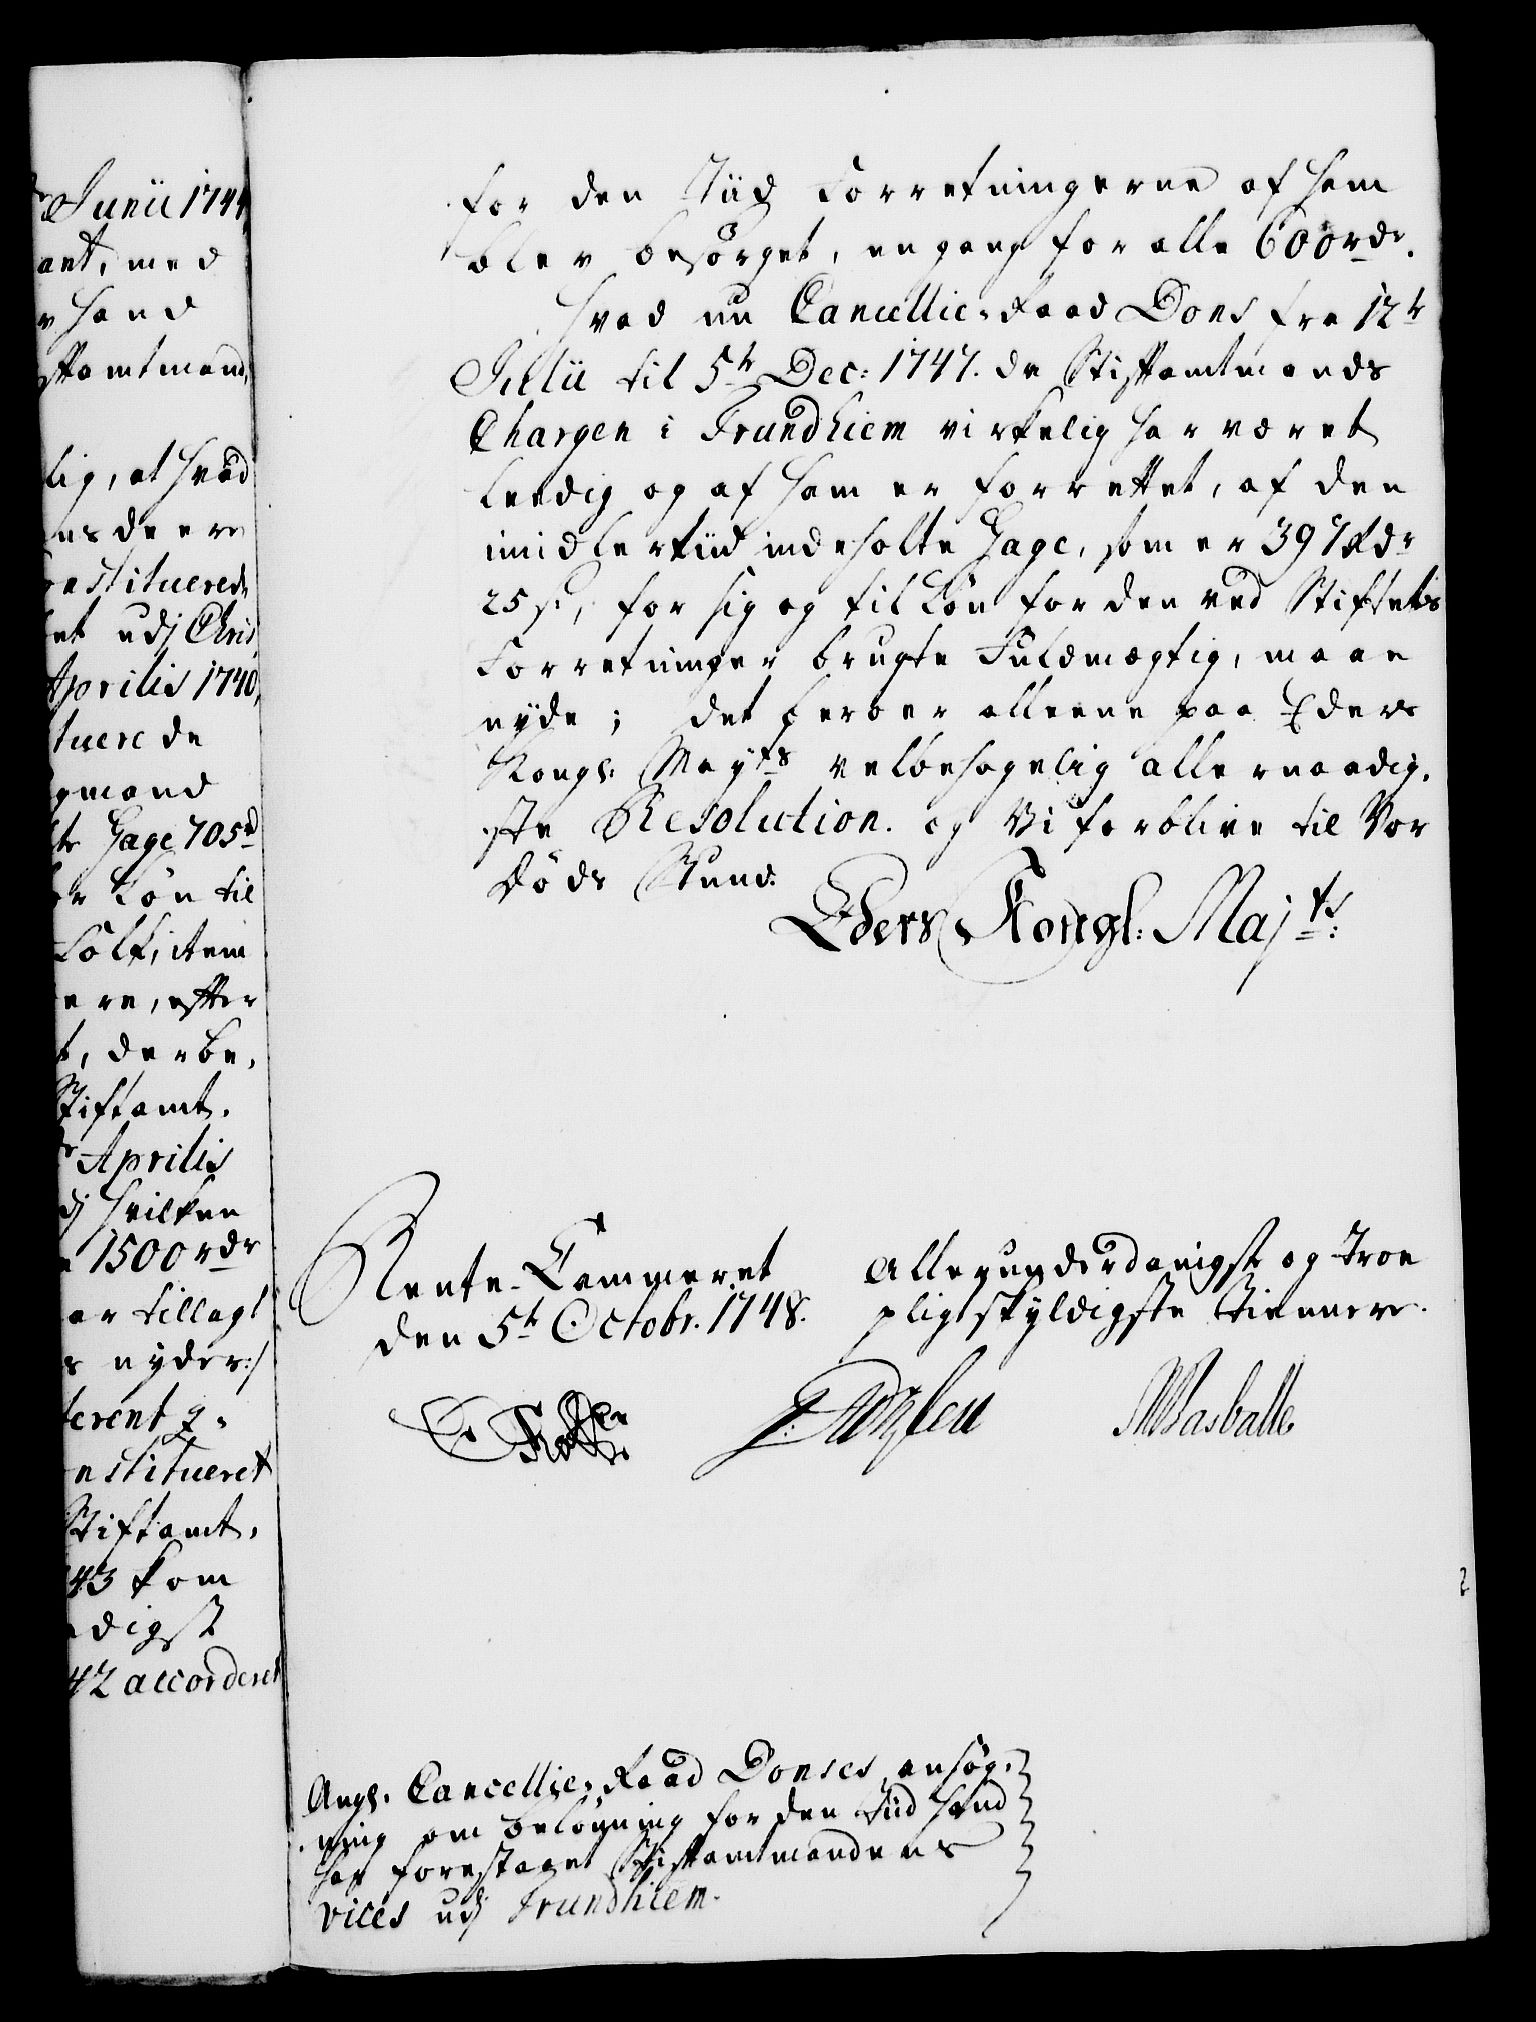 Junii 1744
ant, med
hand
stamtmand,
lig, at hvad
ns de ere
onstituerede
et udj Chris,
Aprilis 1740,
tuere de
gmand
Gage 705rd
Løn til
Folk, item
ere, efter
t, der be,
Stiftamt,
Aprilis
dj hvilken
1500 rdr
ar tillagt
s nyder:/
ferent g,
nstitueret
Stiftamt,
43 kom
digst
42 accorderet
for den Tiid Forretningerne af ham
blev besørget, en gang for alle 600 rdr.
Hvad nu Cancellie-Raad Dons fra 12te
Julii til 5te Dec: 1747. da Stiftamtmands
Chargen i Trundhiem virkelig har været
leedig og af ham er forrettet, af den
imidlertiid indeholte Gage, som er 397 Rdr
25 s:, for sig og til Løn for den ved Stiftets
Forretninger brugte Fuldmægtig, maae
nyde; det beroer alleene paa Eders
Kongl: Mayts velbehagelig allernaadig,
ste Resolution. og Vi forblive til Vor
Døds Stund.
Eders Kongl: Majts:
Rente-Cammeret
den 5te Octobr. 1748.
Allerunderdanigst og Troe
pligtskyldigste Tienere.
Wasballe
Angl. Cancellie-Raad Donses ansøg,
ning om belønning for den Tiid hand
har forestaaet Stiftamtmandens
vices udj Trundhiem.